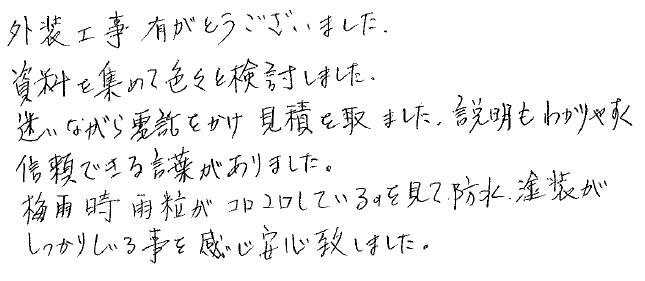 外装工事 有がとうございました.
資料を集めて色々と検討しました.
迷いながら電話をかけ 見積を取 ました. 説明もわかりやすく
信頼できる言葉がありました。
梅雨時 雨粒が コロコロしているのを見て.防水.塗装が
しっかりしいる事を感じ安心致しました。